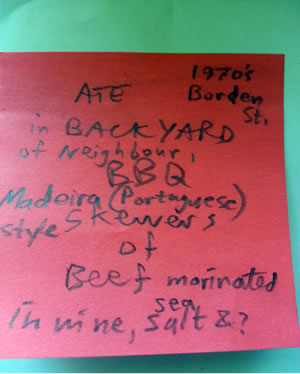 1970's
ATE Borden
St.
in BACKYARD
of Neighbour,
BBQ
Madeira (Portuguese)
style Skewers
of
Beef marinated
in wine, sea salt & ?